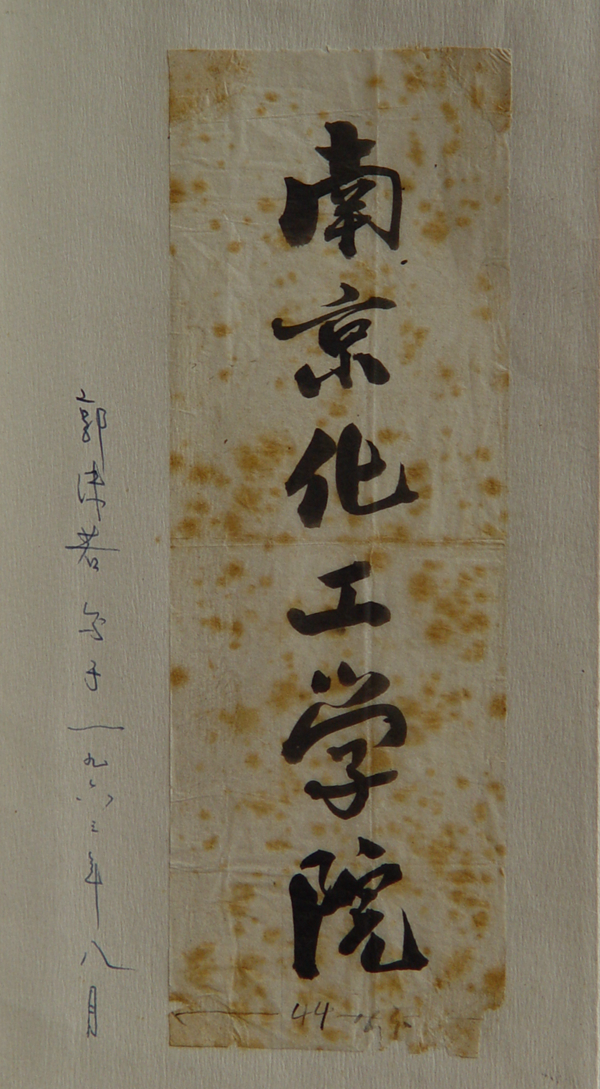 南京化工学院
郭沫若写于一九六三年八月
44